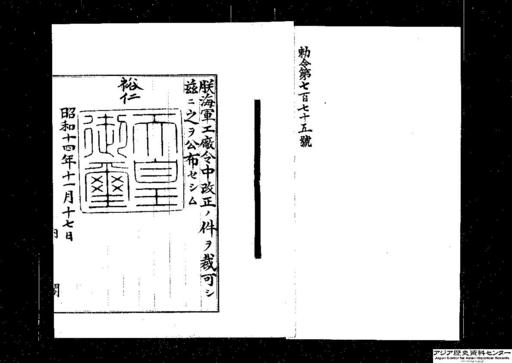 勅令第七百七十五號
朕海軍工廠令中改正ノ件ヲ裁可シ
茲ニ之ヲ公布セシム
裕仁
天皇
御璽
昭和十四年十一月十七日
アジア歴史資料センター
Japan Center for Asian Historical Records